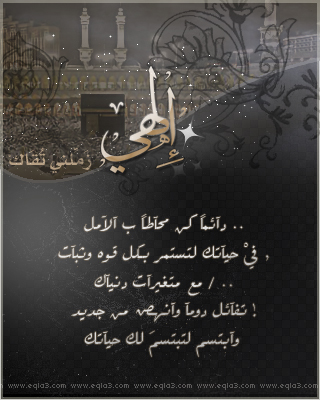 إلهي
زملني تُقاك
.. دآئماً كن محآطاً ب آلآمل
, فيْ حيآتك لتستمر بكل قوه وثبآت
.. / مع متغيرآت دنيآك
! تفآئل دوماً وآنهض من جديد
وآبتسم لتبتسمَ لك حيآتك
www.eqla3.com www.eqla3.com www.eqla3.com www.eqla3.com www.eqla3.com